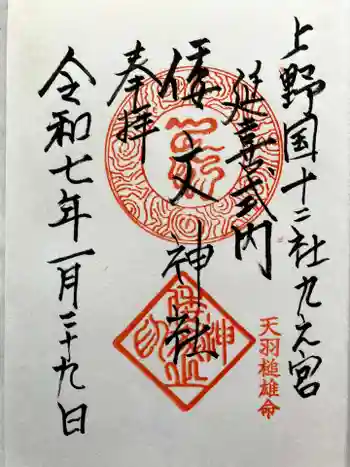 上野国十二社九之宮
延喜式内
倭文神社
奉拝
令和七年一月二十九日
天羽槌雄命